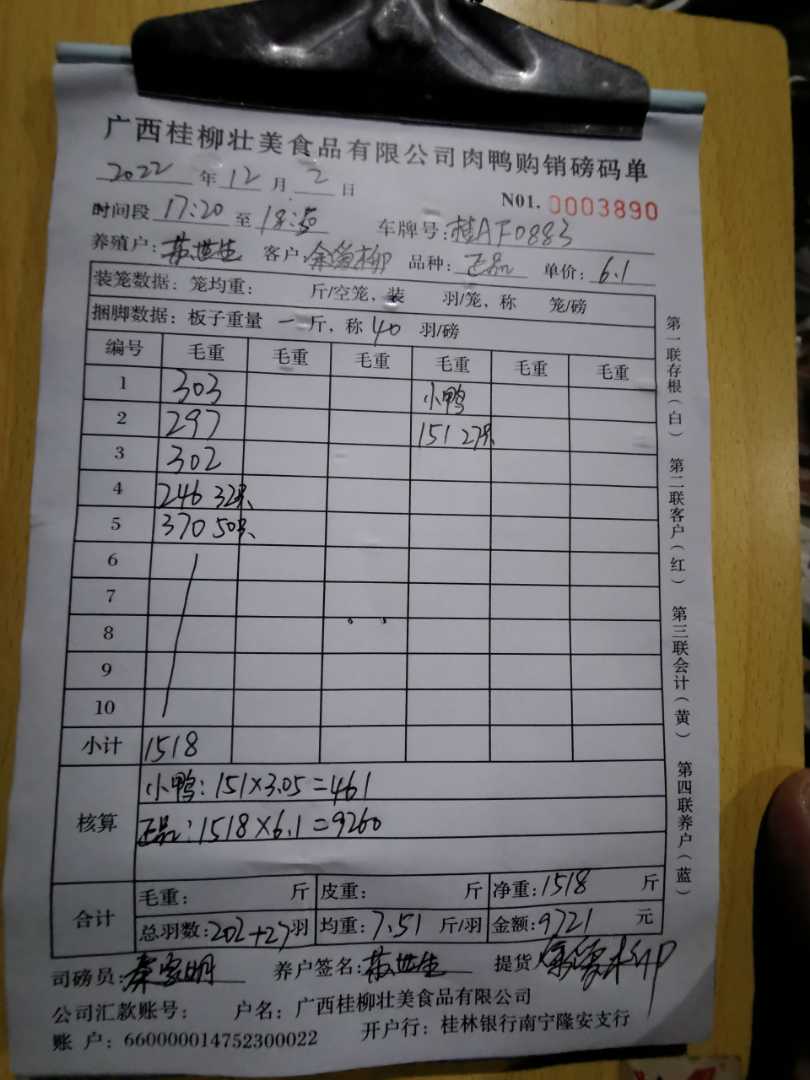 广西桂柳壮美食品有限公司肉鸭购销磅码单
2022 年 12 月 2 日 N01. 0003890
时间段 17:20 至 18:50 车牌号: 桂AF0883
养殖户: 客户: 品种: 正品 单价: 6.1
装笼数据: 笼均重: 斤/空笼, 装 羽/笼, 称 笼/磅
捆脚数据: 板子重量 一 斤, 称 40 羽/磅
编号 毛重 毛重 毛重 毛重 毛重 毛重
1 303 小鸭
2 297 151 27只
3 302
4 246 32只
5 370 50只
6
7
8
9
10
小计 1518
核算
小鸭: 151×3.05=461
正品: 1518×6.1=9260
合计
毛重: 斤 皮重: 斤 净重: 1518 斤
总羽数: 202+27 羽 均重: 7.51 斤/羽 金额: 9721 元
司磅员: 秦家明 养户签名: 提货
公司汇款账号: 户名: 广西桂柳壮美食品有限公司
账 户: 660000014752300022 开户行: 桂林银行南宁隆安支行
第一联存根(白) 第二联客户(红) 第三联会计(黄) 第四联养户(蓝)